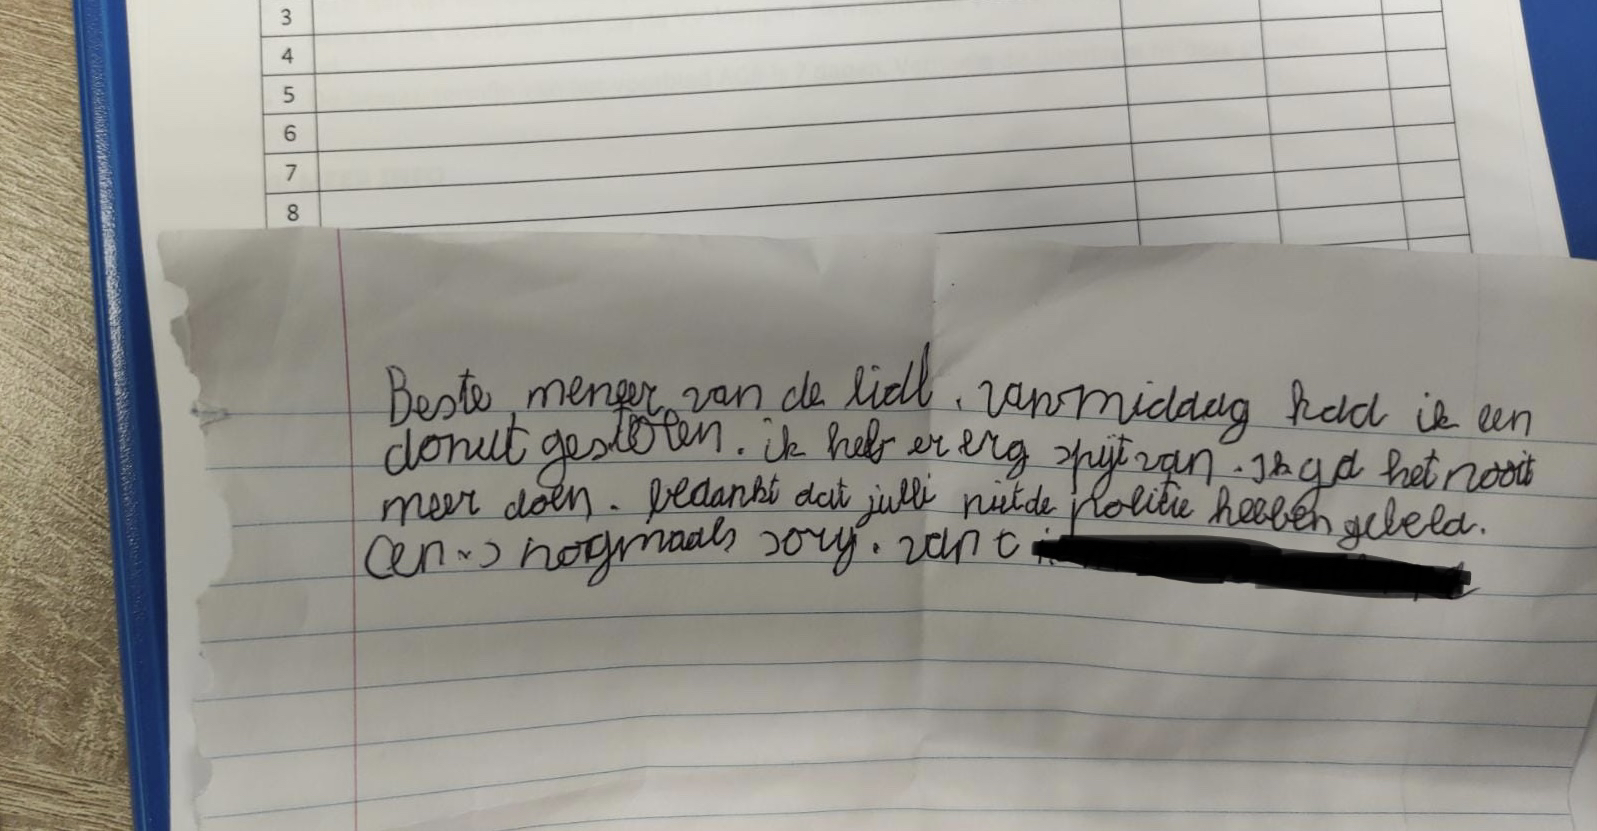 3
4
5
6
7
8
Beste menser van de lidl. vanmiddag had ik een
donut gestolen. ik heb er erg spijt van. Ik ga het nooit
meer doen. bedankt dat julli niet de politie hebben gebeld.
nogmaals sory. van